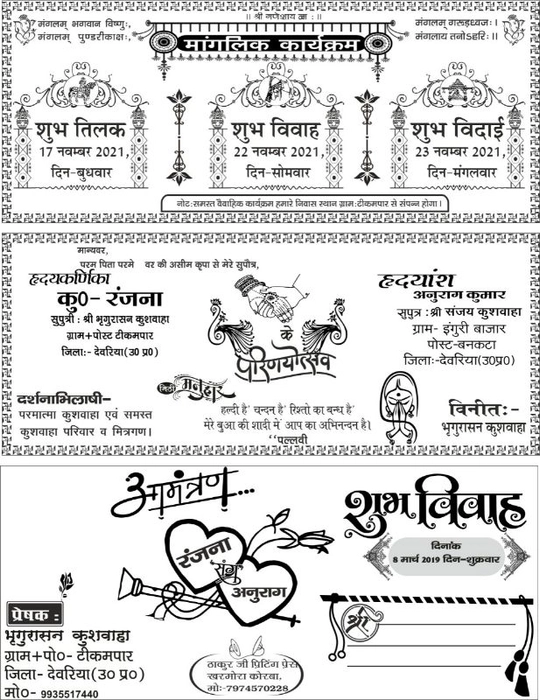 ॥ श्री गणेशाय नमः ॥
मंगलम् भगवान विष्णुः,
मंगलम् पुण्डरीकाक्षः,
मांगलिक कार्यक्रम
मंगलम् गरूड़ध्वजः।
मंगलाय तनोऽहरिः॥
शुभ तिलक
17 नवम्बर 2021,
दिन-बुधवार
शुभ विवाह
22 नवम्बर 2021,
दिन-सोमवार
शुभ विदाई
23 नवम्बर 2021,
दिन-मंगलवार
नोट:समस्त वैवाहिक कार्यक्रम हमारे निवास स्थान ग्राम:टीकमपार से संपन्न होगा।
मान्यवर,
परम पिता परमे वर की असीम कृपा से मेरे सुपौत्र,
हृदयकर्णिका
कु0- रंजना
सुपुत्री : श्री भृगुरासन कुशवाहा
ग्राम+पोस्ट टीकमपार
जिला:- देवरिया(उ0 प्र0)
के
परिणयोत्सव
हृदयांश
अनुराग कुमार
सुपुत्र : श्री संजय कुशवाहा
ग्राम- इंगुरी बाजार
पोस्ट-बनकटा
जिला:-देवरिया(उ0प्र0)
दर्शनाभिलाषी-
परमात्मा कुशवाहा एवं समस्त
कुशवाहा परिवार व मित्रगण।
मनुहार
हल्दी है' चन्दन है' रिश्तो का बन्ध है'
मेरे बुआ की शादी में' आप का अभिनन्दन है।
''पल्लवी
विनीतः-
भृगुरासन कुशवाहा
आमंत्रण...
रंजना
संग
अनुराग
शुभ विवाह
दिनांक
8 मार्च 2019 दिन-शुक्रवार
श्री
प्रेषक :
भृगुरासन कुशवाहा
ग्राम+पो0- टीकमपार
जिला- देवरिया(उ0 प्र0)
मो0- 9935517440
ठाकुर जी प्रिटिंग प्रेस
खरमोरा कोरबा,
मोः-7974570228